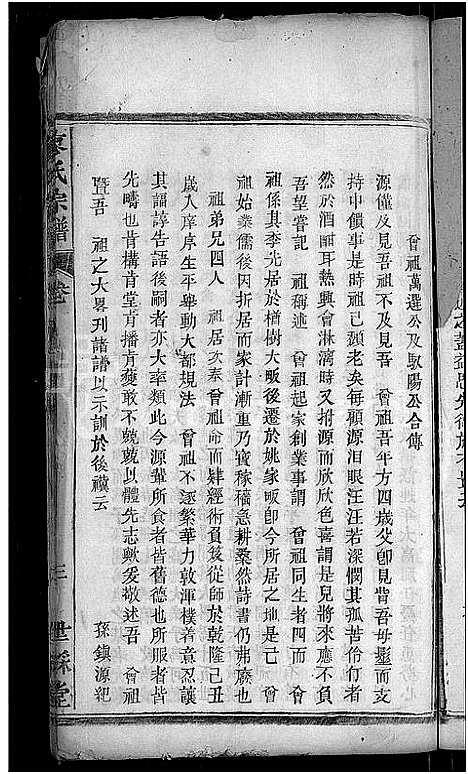 曾祖萬選公及馭陽公合傳
源僅及見吾祖不及見吾　曾祖吾年方四歲父卽見背吾母鬻而支
持中饋事是時祖已頹老矣每顧源泪眼汪汪若深憫其孤苦伶仃者
然於酒酣耳熱興會淋漓時又拊源而欣欣色喜謂是兒將來應不負
吾望嘗記　祖稱述　曾祖起家創業事謂　曾祖同生者四而　曾
祖係其季先居於楢樹大畈後遷於姚家畈卽今所居之地是已　曾
祖始業儒後因折居而家計漸重乃寳稼穡急耕桑然詩書仍弗廢也
祖弟兄四人　祖居次奉曾祖命而肄經術負笈從師於乾隆己丑
歲入庠序生平舉動大都規法　曾祖不逐繁華力敦渾樸着意忍讓
其諄諄告語後嗣者亦大率類此今源輩所食者皆舊德也所服者皆
先疇也肯構肯堂肯播肯穫敢不兢兢以體先志歟爰敬述吾　曾祖
暨吾　祖之大畧刋諸譜以示訓於後禩云
孫鎮源紀
氏宗譜
卷
三
世綵堂